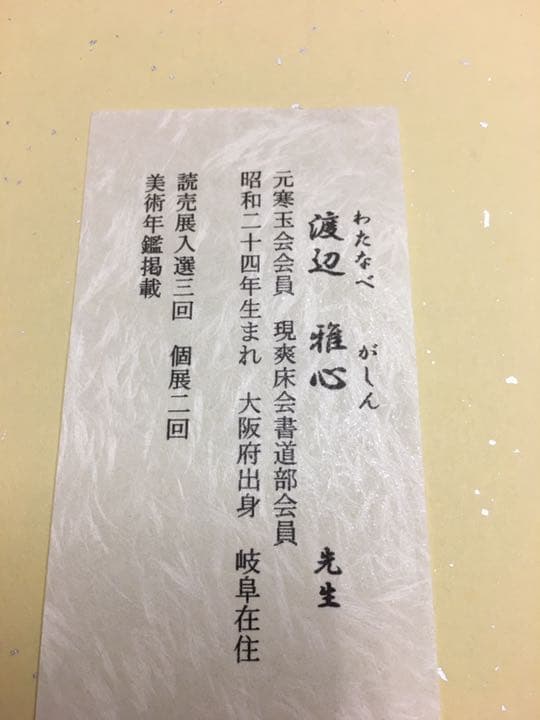 わたなべ がしん
渡辺 雅心 先生
元寒玉会会員 現爽床会書道部会員
昭和二十四年生まれ 大阪府出身 岐阜在住
読売展入選三回 個展二回
美術年鑑掲載